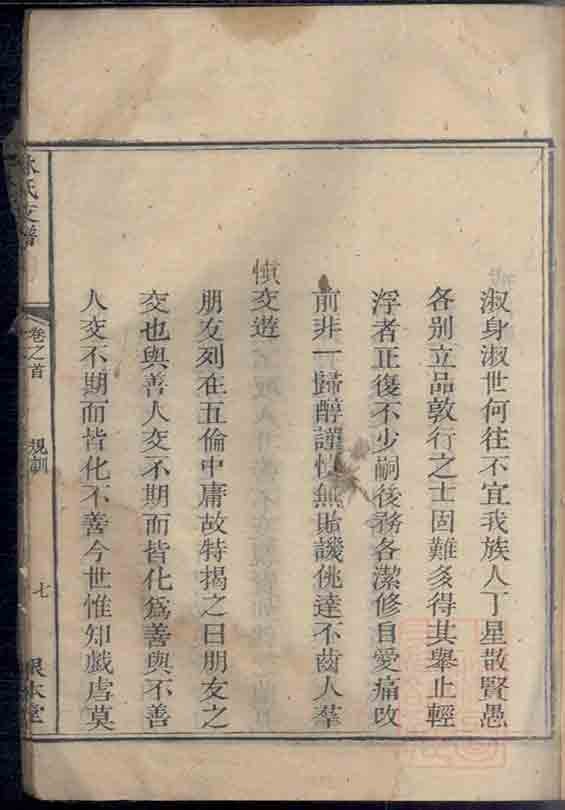 淑身淑世何往不宜我族人丁星散賢愚
各别立品敦行之士固難多得其舉止輕
浮者正復不少嗣後務各潔修自愛痛改
前非一歸醇謹快無貽譏佻達不齒人羣
慎交遊
朋友列在五倫中庸故特揭之曰朋友之
交也與善人交不期而皆化爲善與不善
人交不期而皆化不善今世惟知戲虐莫
氏支譜
卷之首
規訓
七
本堂